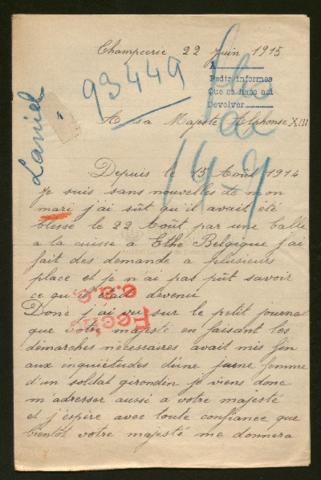 Champcerie 22 Juin 1915
A
Pedir informes
Que se haga así
Devolver
93449
A sa Majesté Alphonse XIII
Laniel
14-7
Depuis le 15 Août 1914
je suis sans nouvelles de mon
mari j'ai sût qu'il avait été
blessé le 22 Août par une balle
a la cuisse à Ethe Belgique j'ai
fait des demande a plusieurs
place et je n'ai pas pût savoir
ce qu'il était devenu
Donc j'ai vu sur le petit journal
que votre majesté en faisant les
démarches nécessaires avait mis fin
aux inquiétudes d'une jeune femme
d'un soldat girondin je viens donc
m'adresser aussi a votre majesté
et j'espère avec toute confiance que
bientôt votre majesté me donnera